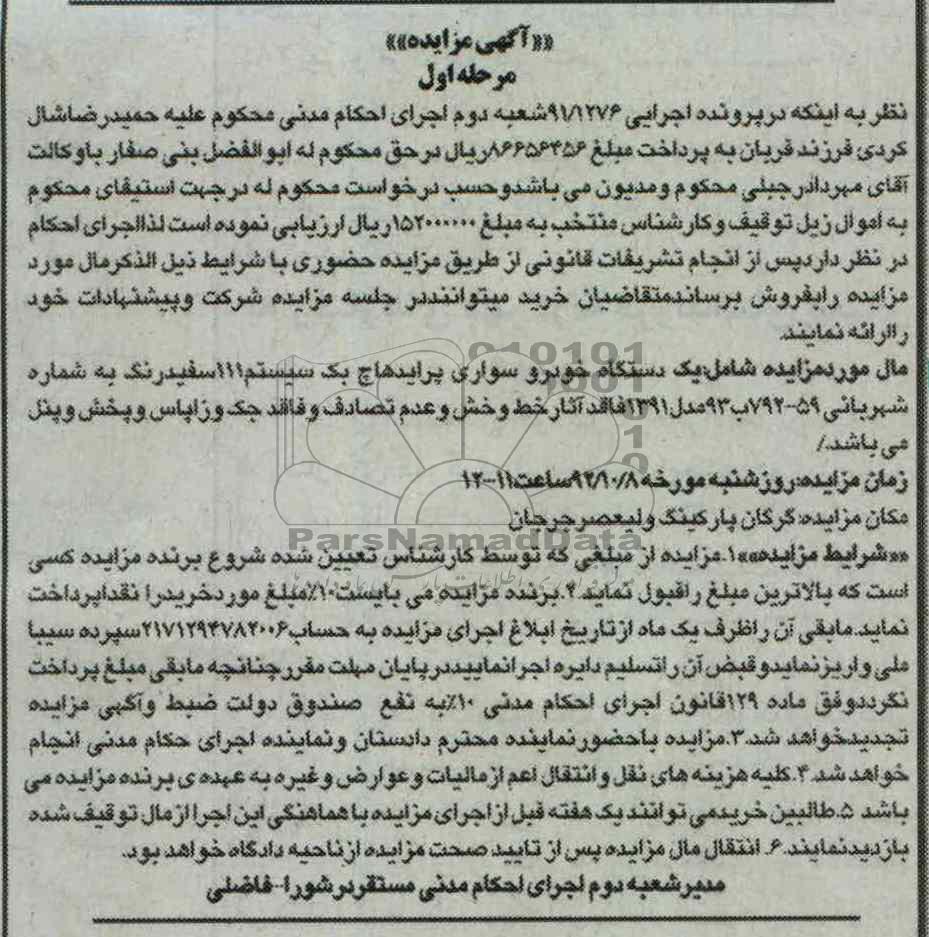 ««آگهی مزایده»»
مرحله اول
نظر به اینکه در پرونده اجرایی ۹۱/۱۲۷۶شعبه دوم اجرای احکام مدنی محکوم علیه حمیدرضاشال
کردی فرزند قربان به پرداخت مبلغ ۸۶۶۵۶۴۵۶ریال در حق محکوم له ابوالفضل بنی صفار باوکالت
آقای مهرداد رجبلی محکوم و مدیون می باشدو حسب درخواست محکوم له در جهت استیفای محکوم
به اموال زیل توقیف و کارشناس منتخب به مبلغ ۱۵۲۰۰۰۰۰۰ریال ارزیابی نموده است لذااجرای احکام
در نظر داردپس از انجام تشریفات قانونی از طریق مزایده حضوری با شرایط ذیل الذکرمال مورد
مزایده رابفروش برساندمتقاضیان خرید میتواننددر جلسه مزایده شرکت وپیشنهادات خود
راارائه نمایند.
مال موردمزایده شامل:یک دستگاه خودرو سواری پرایدهاچ بک سیستم۱۱۱سفیدرنگ به شماره
شهربانی ۵۹-۷۹۲ب۹۳مدل۱۳۹۱فاقد آثارخط وخش و عدم تصادف و فاقد جک وزاپاس و پخش و پنل
می باشد./
زمان مزایده:روزشنبه مورخه ۹۲/۱۰/۸ساعت۱۱-۱۲
مکان مزایده: گرگان پارکینگ ولیعصرجرجان
ParsNamadData
««شرایط مزایده»»۱.مزایده از مبلغی که توسط کارشناس تعیین شده شروع برنده مزایده کسی
است که بالاترین مبلغ راقبول نماید.۲.برنده مزایده می بایست۱۰٪مبلغ موردخریدرا نقداپرداخت
نماید.مابقی آن راظرف یک ماه ازتاریخ ابلاغ اجرای مزایده به حساب۲۱۷۱۲۹۴۷۸۲۰۰۶سپرده سیبا
ملی واریزنمایدو قبض آن راتسلیم دایره اجرانماییددر پایان مهلت مقررچنانچه مابقی مبلغ پرداخت
نگرددوفق ماده ۱۲۹قانون اجرای احکام مدنی ۱۰٪به نفع صندوق دولت ضبط وآگهی مزایده
تجدیدخواهد شد.۳.مزایده باحضورنماینده محترم دادستان ونماینده اجرای حکام مدنی انجام
خواهد شد.۴.کلیه هزینه های نقل و انتقال اعم از مالیات و عوارض و غیره به عهده ی برنده مزایده می
باشد ۵.طالبین خریدمی توانند یک هفته قبل از اجرای مزایده باهماهنگی این اجرا از مال توقیف شده
بازدیدنمایند.۶. انتقال مال مزایده پس از تایید صحت مزایده ازناحیه دادگاه خواهد بود.
مدیر شعبه دوم اجرای احکام مدنی مستقردرشورا-فاضلی